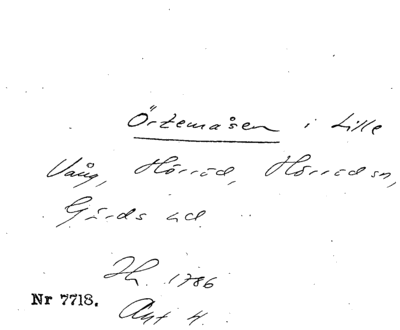 Örtemåsen i Lille
Vång, Hörröd, Hörröds sn,
Gärds hd.
Jh. 1786
Nr 7718.
Akt 4.